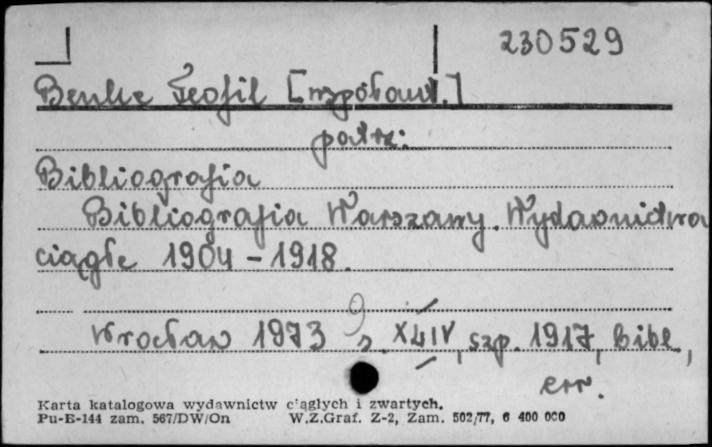 230529
Benke Teofil [współaut.]
patrz:
Bibliografia
Bibliografia Warszawy. Wydawnictwa
ciągłe 1904-1918.
Wrocław 1973 s. XLIV, szp. 1917, bibl.,
err.
Karta katalogowa wydawnictw ciągłych i zwartych.
Pu-B-144 zam. 567/DW/On W.Z.Graf. Z-2, Zam. 502/77, 6 400 000